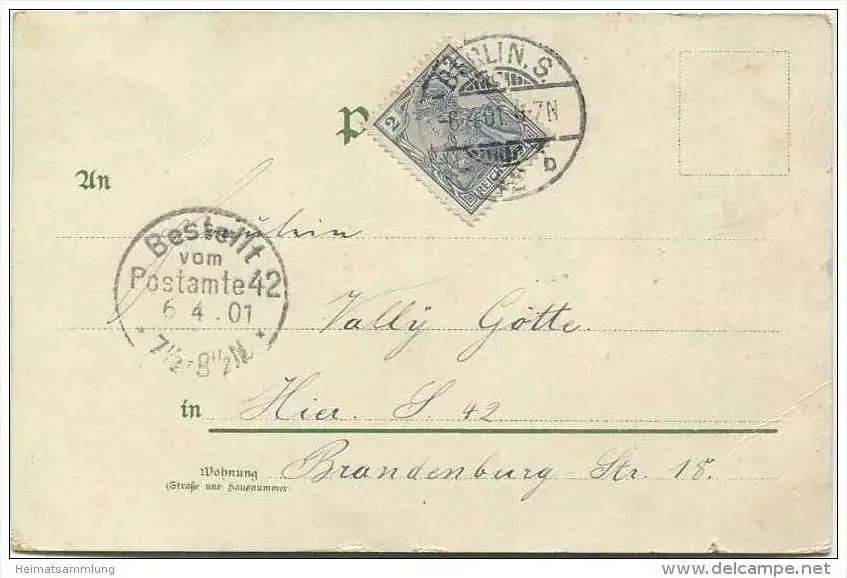 BERLIN. S.
-6.4.01. 6-7N
b
2
REICH
An
Bestellt
vom
Postamte 42
6 4 . 01
* 7½-8½N *
Fräulein
Vally Götte.
in Hier. S 42
Wohnung
(Straße und Hausnummer)
Brandenburg-Str. 18.
Heimatsammlung
www.delcampe.net